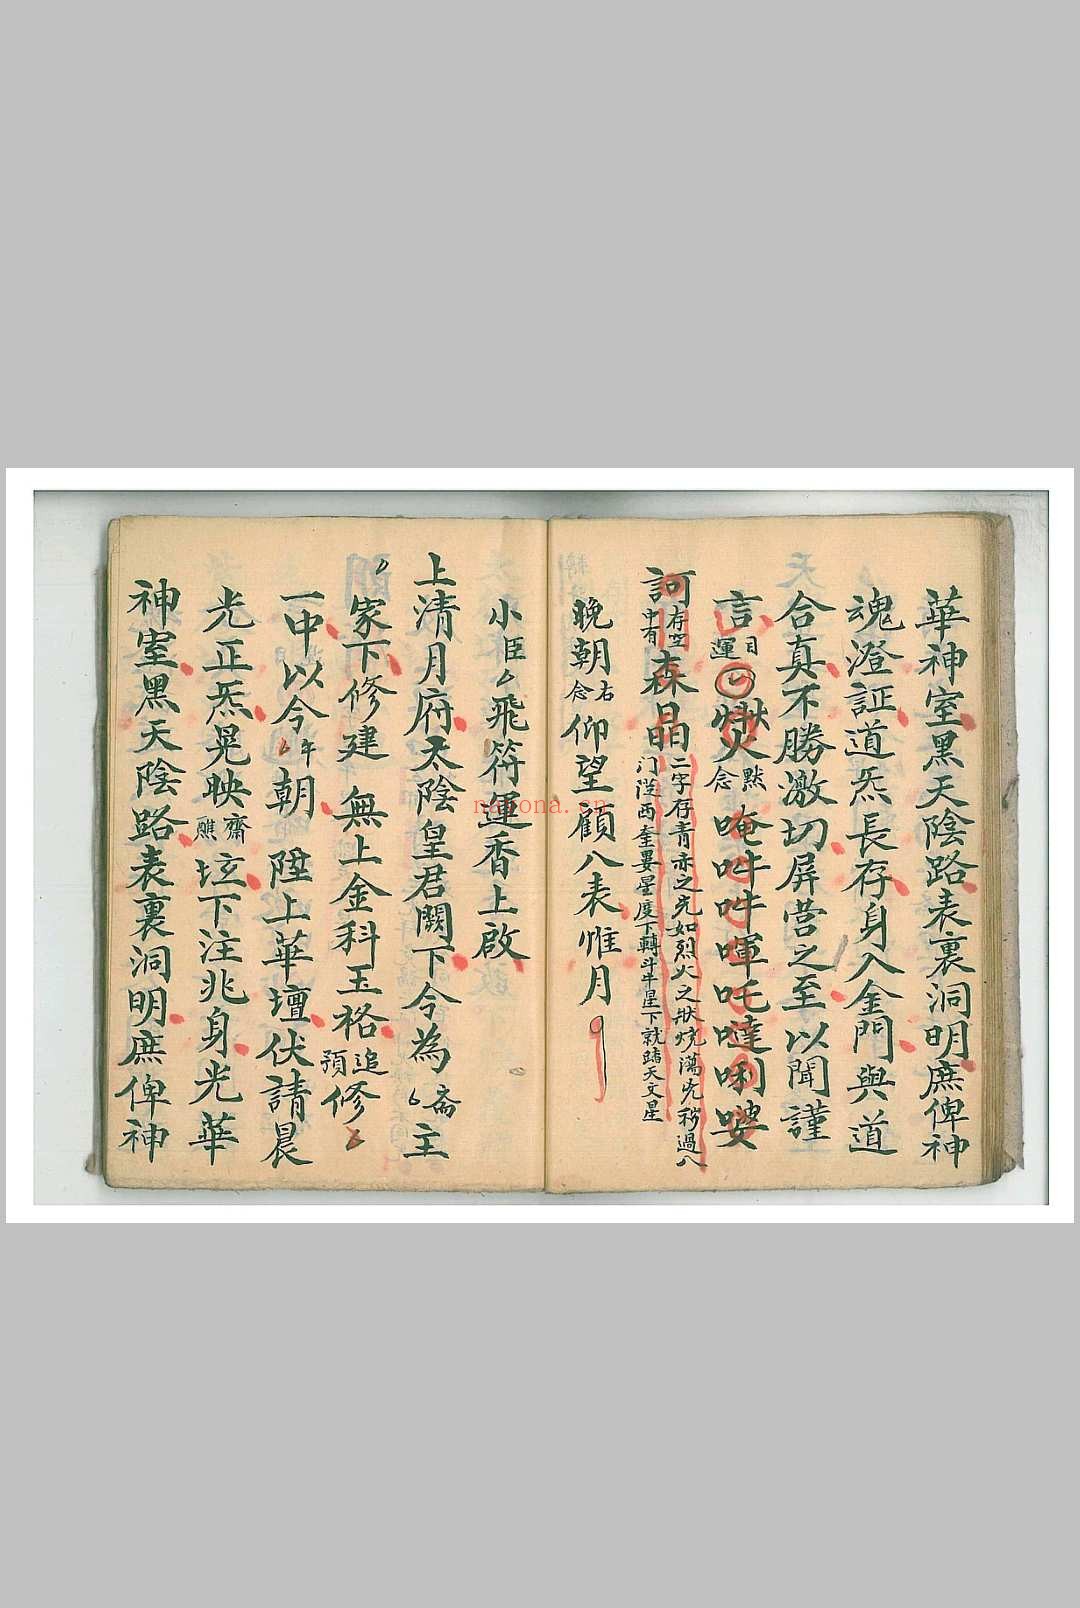 華神室黑天陰路表裏洞明庶俾神
魂澄証道炁長存身入金門與道
合真不勝激切屏营之至以聞謹
言目運㘞默念唵吽吽㖟吒噠唎娑
訶存空中有森晶二字存青赤之光如烈火之状燒蕩光移過八
门從西奎婁星度下轉斗牛星下就踏天文星
晚朝右念仰望顧八表惟月
小臣厶飛符運香上啟
上清月府太陰皇君闕下今為斋主
家下修建無上金科玉格追預修
一中以今午朝陞上華壇伏請晨
光正炁晃映齋醮坛下注兆身光華
神室黑天陰路表裏洞明庶俾神
nayona.cn